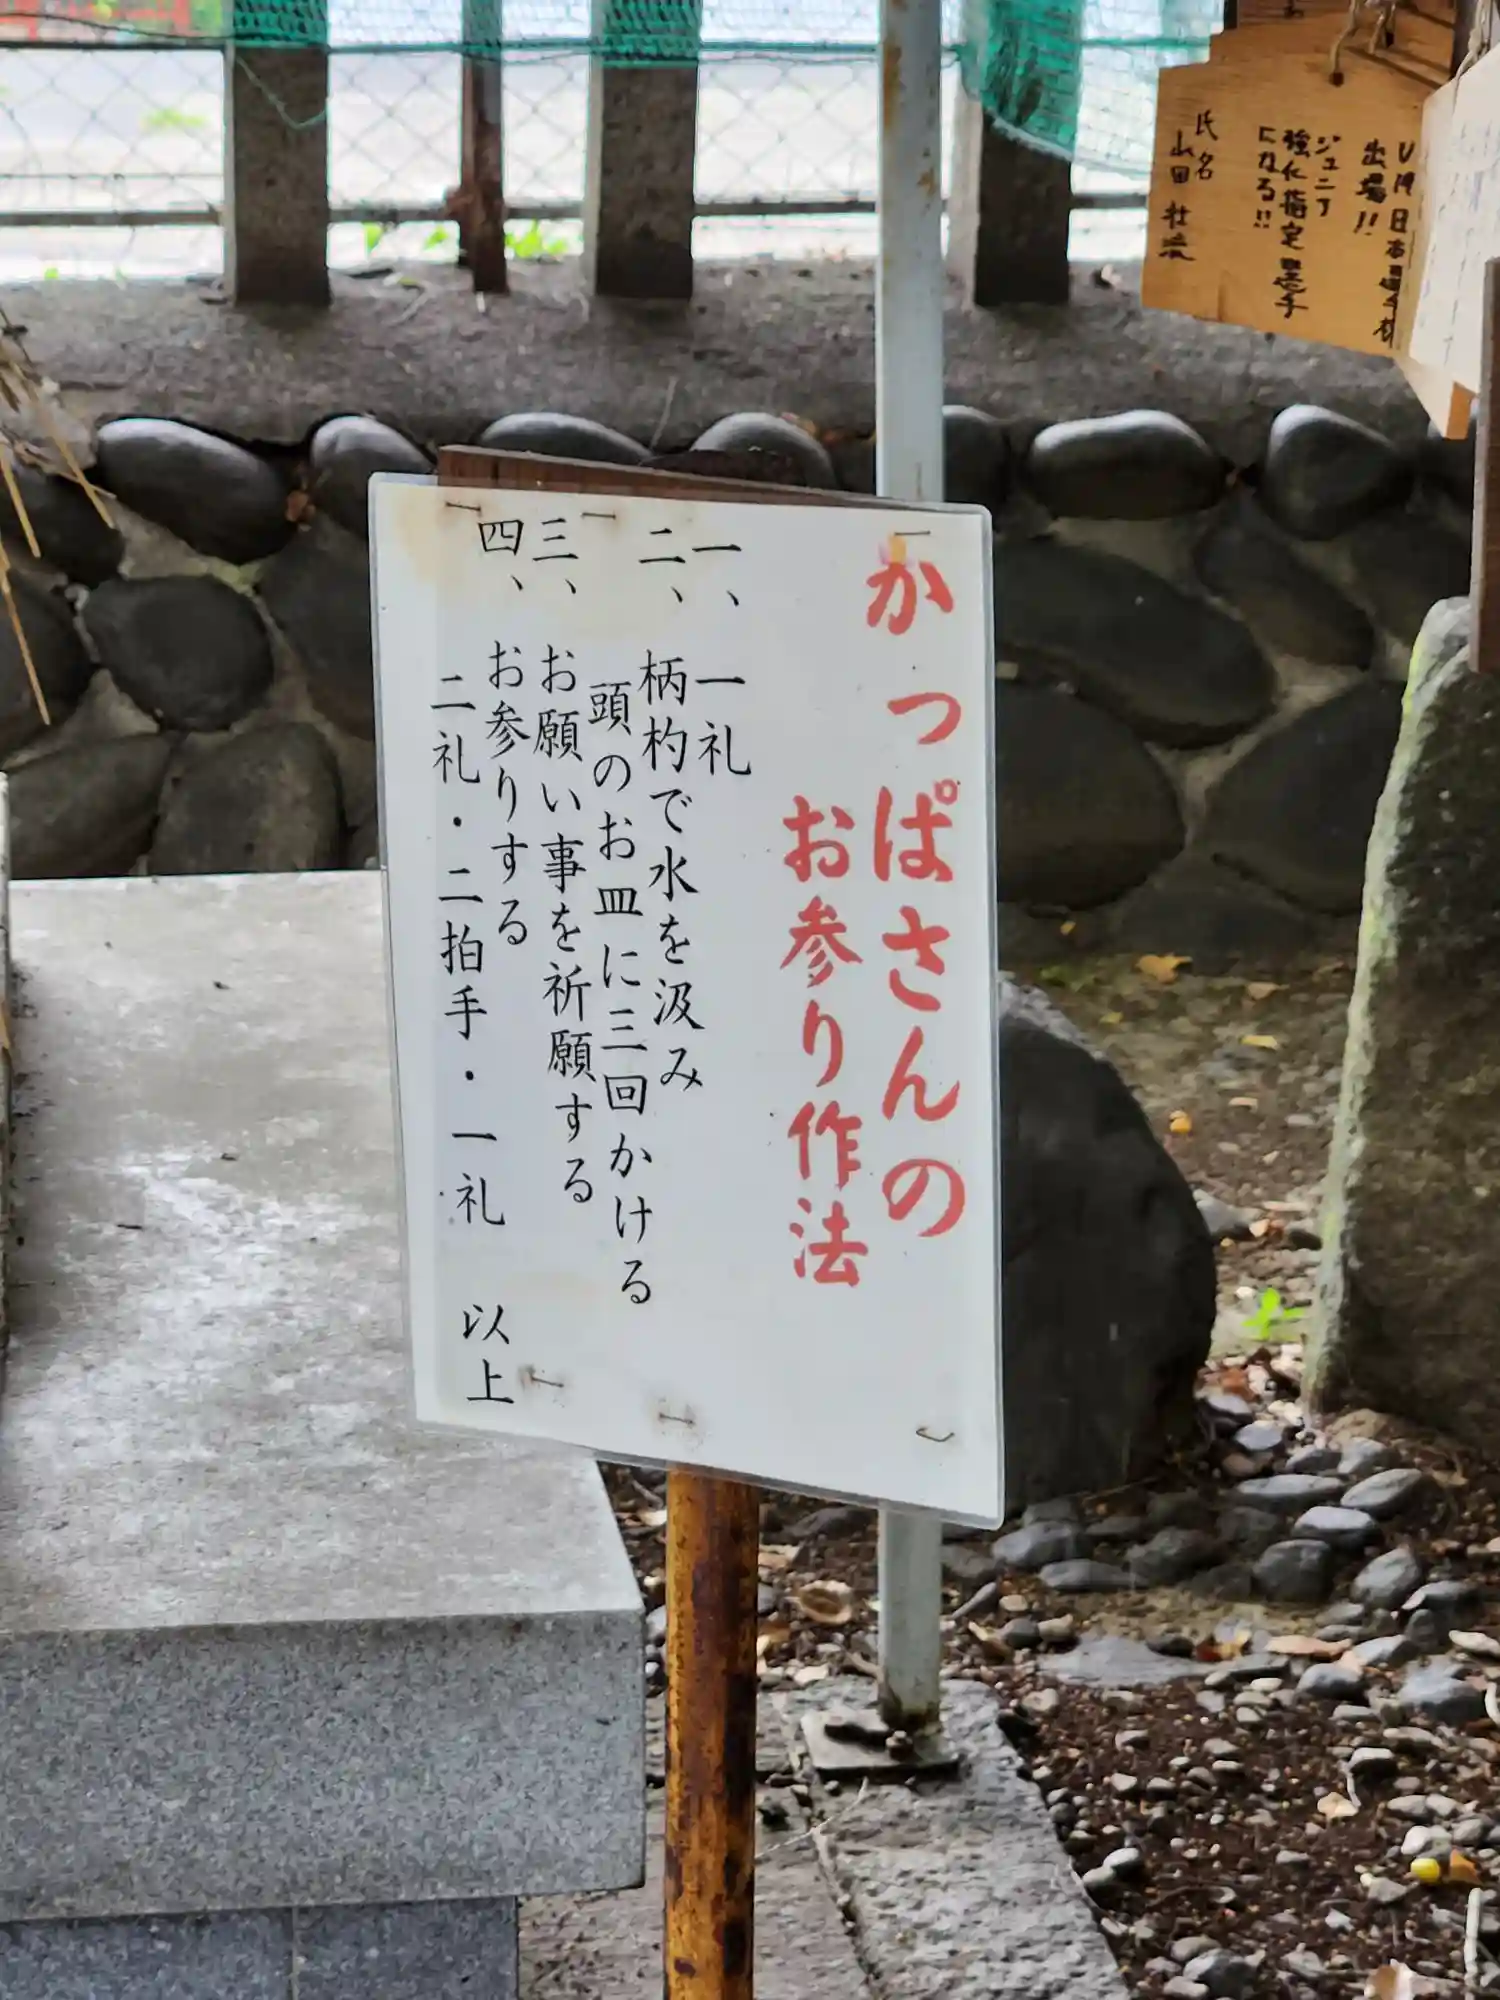 かっぱさんの
お参り作法
一、一礼
二、柄杓で水を汲み
頭のお皿に三回かける
三、お願い事を祈願する
四、お参りする
二礼・二拍手・一礼　以上
出場!!
ジュニア
強化指定選手
になる!!
氏名
山田